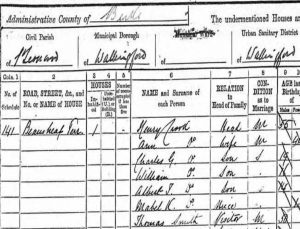 Administrative County of Berks
The undermentioned Houses a
Civil Parish
Municipal Borough
Urban Sanitary District
of St Leonard
of Wallingford
of Wallingford
Cols. 1
2
3
4
5
6
7
8
9
10
No. of Schedule
ROAD, STREET, &c., and No. or NAME of HOUSE
HOUSES
NAME and Surname of each Person
RELATION to Head of Family
CONDITION as to Marriage
AGE last Birthday of
141
1
Henry
Head
M
Ann Do
Wife
M
Charles G. Do
Son
S
William Do
Son
Albert Do
Son
Mabel K. Do
Niece
Thomas Smith
Visitor
M